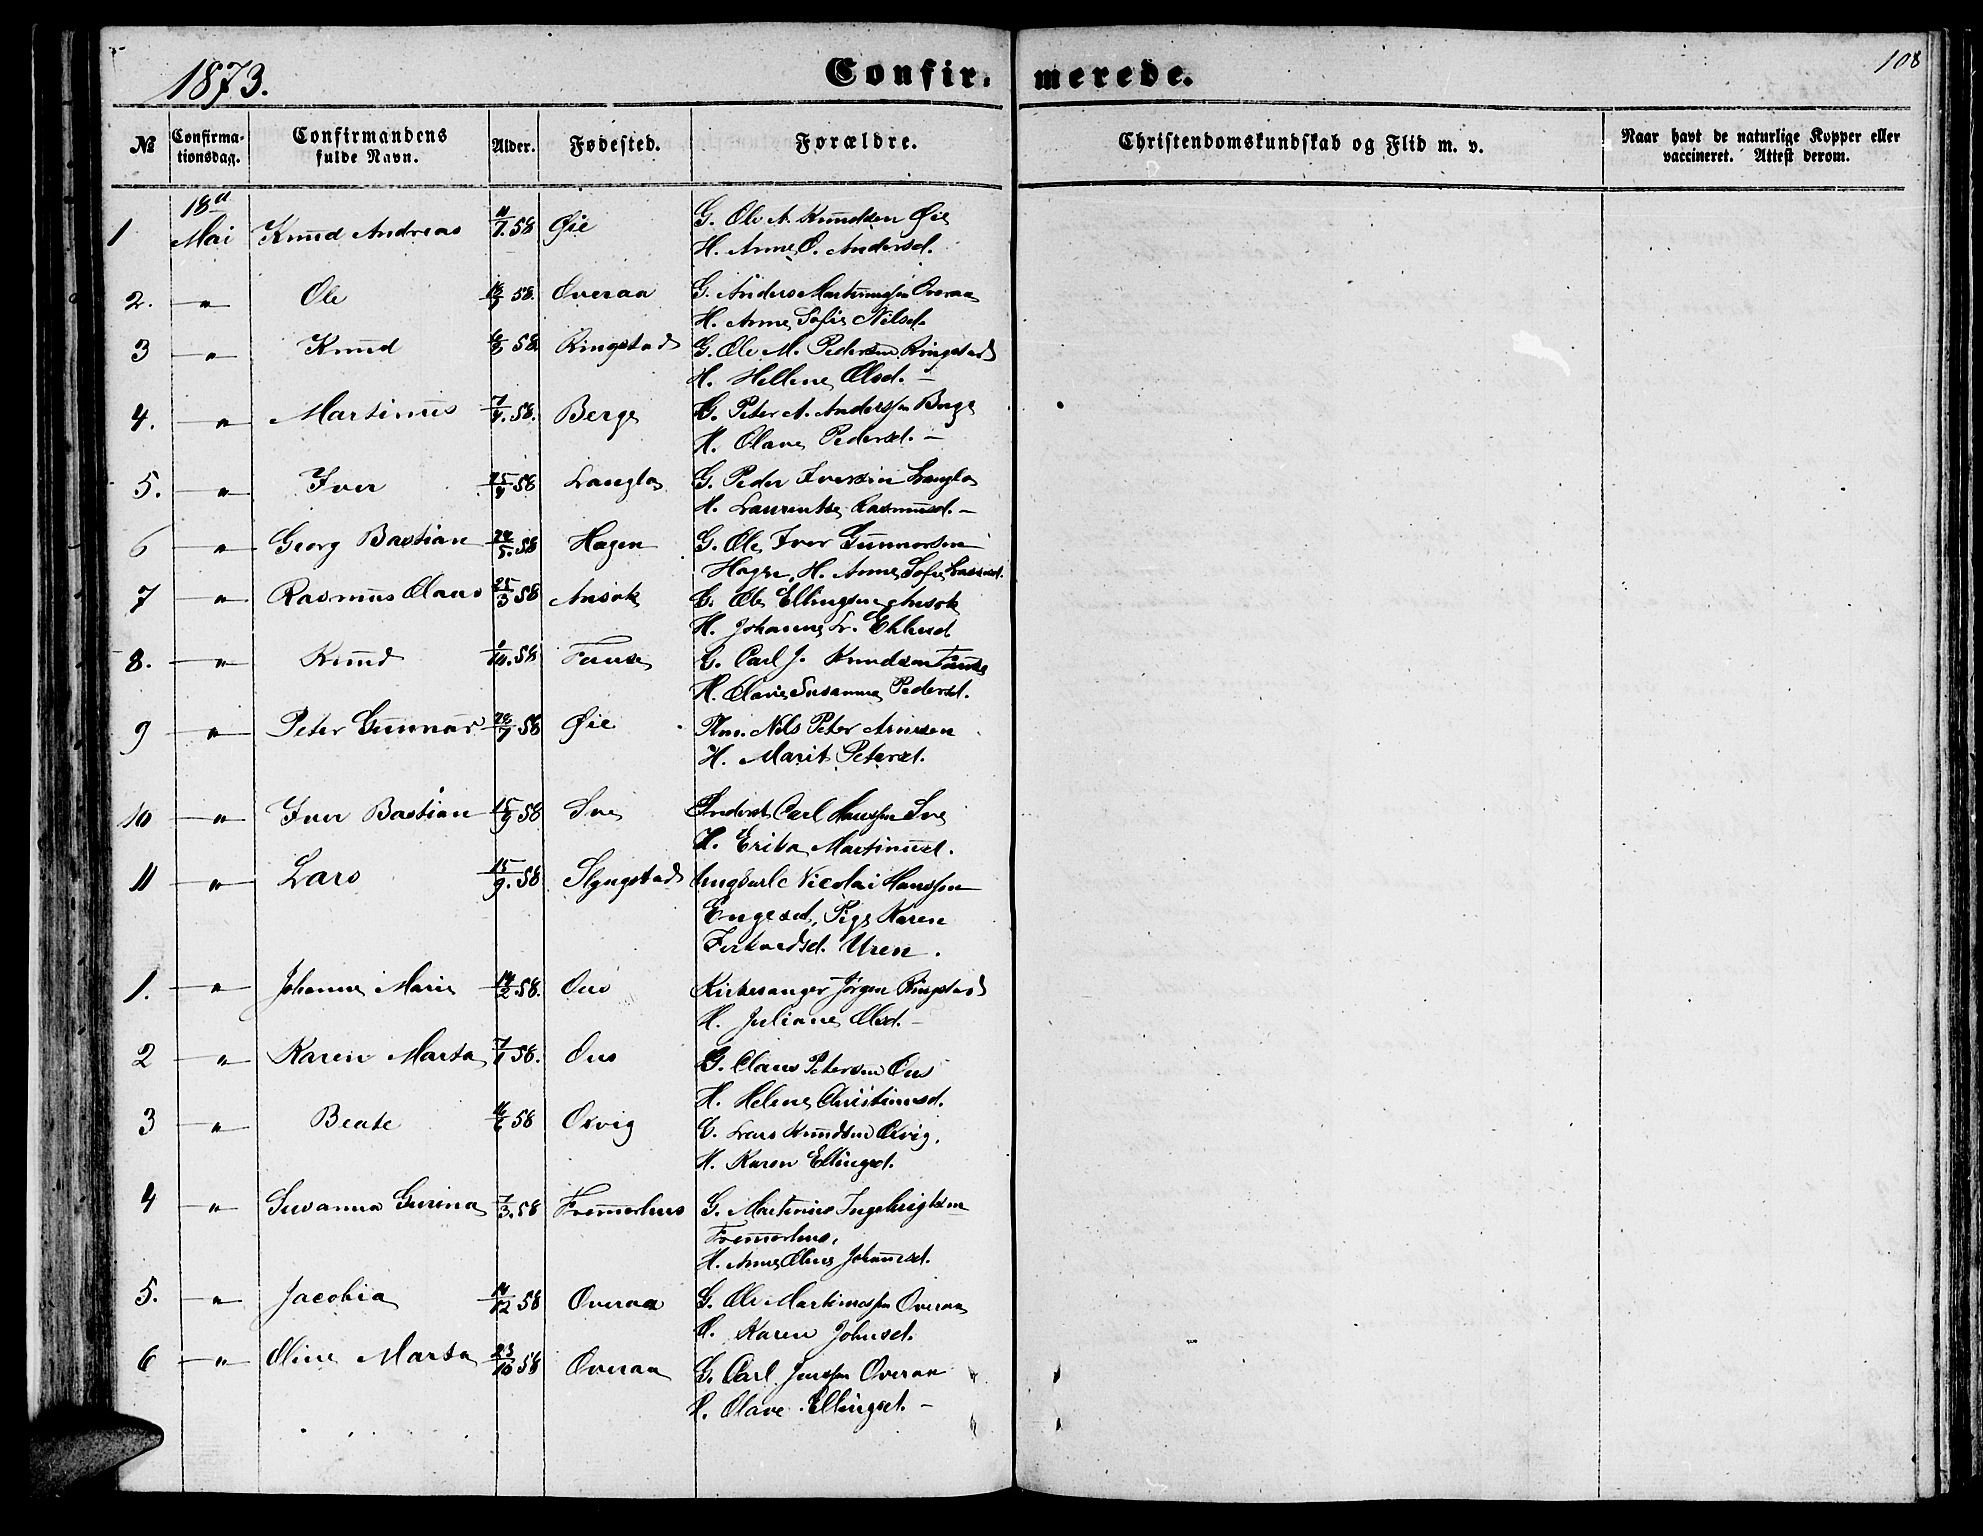 1873. Confirmerede. 108
№ Confirmationsdag. Confirmandens fulde Navn. Alder. Fødested. Forældre. Christendomskundskab og Flid m. v. Naar havt de naturlige Kopper eller vaccineret. Attest derom.
18d
1 Mai Knud Andreas 11/7.58 Øie G. Ole A. Knudsen Øie
H. Anne O. Andersd.
2. " Ole 58. Overaa G. Anders Martinussen Overaa
H. Anne Sofie Nilsd.
3 " Knud 58. Ringstad G. Ole M. Pedersen Ringstad
H. Hellene Olsd. –
4. " Martinus 58. Berge G. Peter A. Anderssen Berge
H. Olave Pedersd. –
5. " Iver 58 Langlo G. Peder Iversen Langlo
H. Laurentse Rasmusd. –
6 " Georg Bastian 58 Hagen G. Ole Iver Gunnarsen
Hagen, H. Anne Sofie Lassesd.
7 " Rasmus Claus 25/3 58 Ansok G. Ole Ellingsen Ansok
H. Johanne L.
8. " Knud 58 Fause G. Carl J. Knudsen Fause
H. Olave Susanne Pedersd.
9 " Peter Gunnar 58 Øie Pm. Nils Peter Arnesen
H. Marit Petersd.
10 " Iver Bastian 15/9 58 Sve Inderst Carl Hanssen Sve
H. Erika Martinusd.
11 " Lars 15/9. 58 Slyngstad Ungkarl Nicolai Hanssen
Engeset, Pige Karen
Uren.
1. " Johanne Marie 14/2 58. Ous Kirkesanger Jørgen Ringstad
H. Juliane Olsd. –
2 " Karen Marta 58. Ous G. Claus Petersen Ous
H. Helene Christiansd.
3 " Beate 58 Oxvig G. Lars Knudsen Oxvig,
H. Karen Ellingsd.
4 " Susanna Gurina 7/3.58 Fremerhus G. Martinus Ingebrigtsen
Fremerhus,
H. Anne Oline Johansd.
5. " Jacobia 14/12 58 Overaa G. Ole Martinussen Overaa
H. Karen Johnsd.
6 " Oline Marta 23/10 58 Overaa G. Carl Jenssen Overaa
H. Olave Ellingsd. –